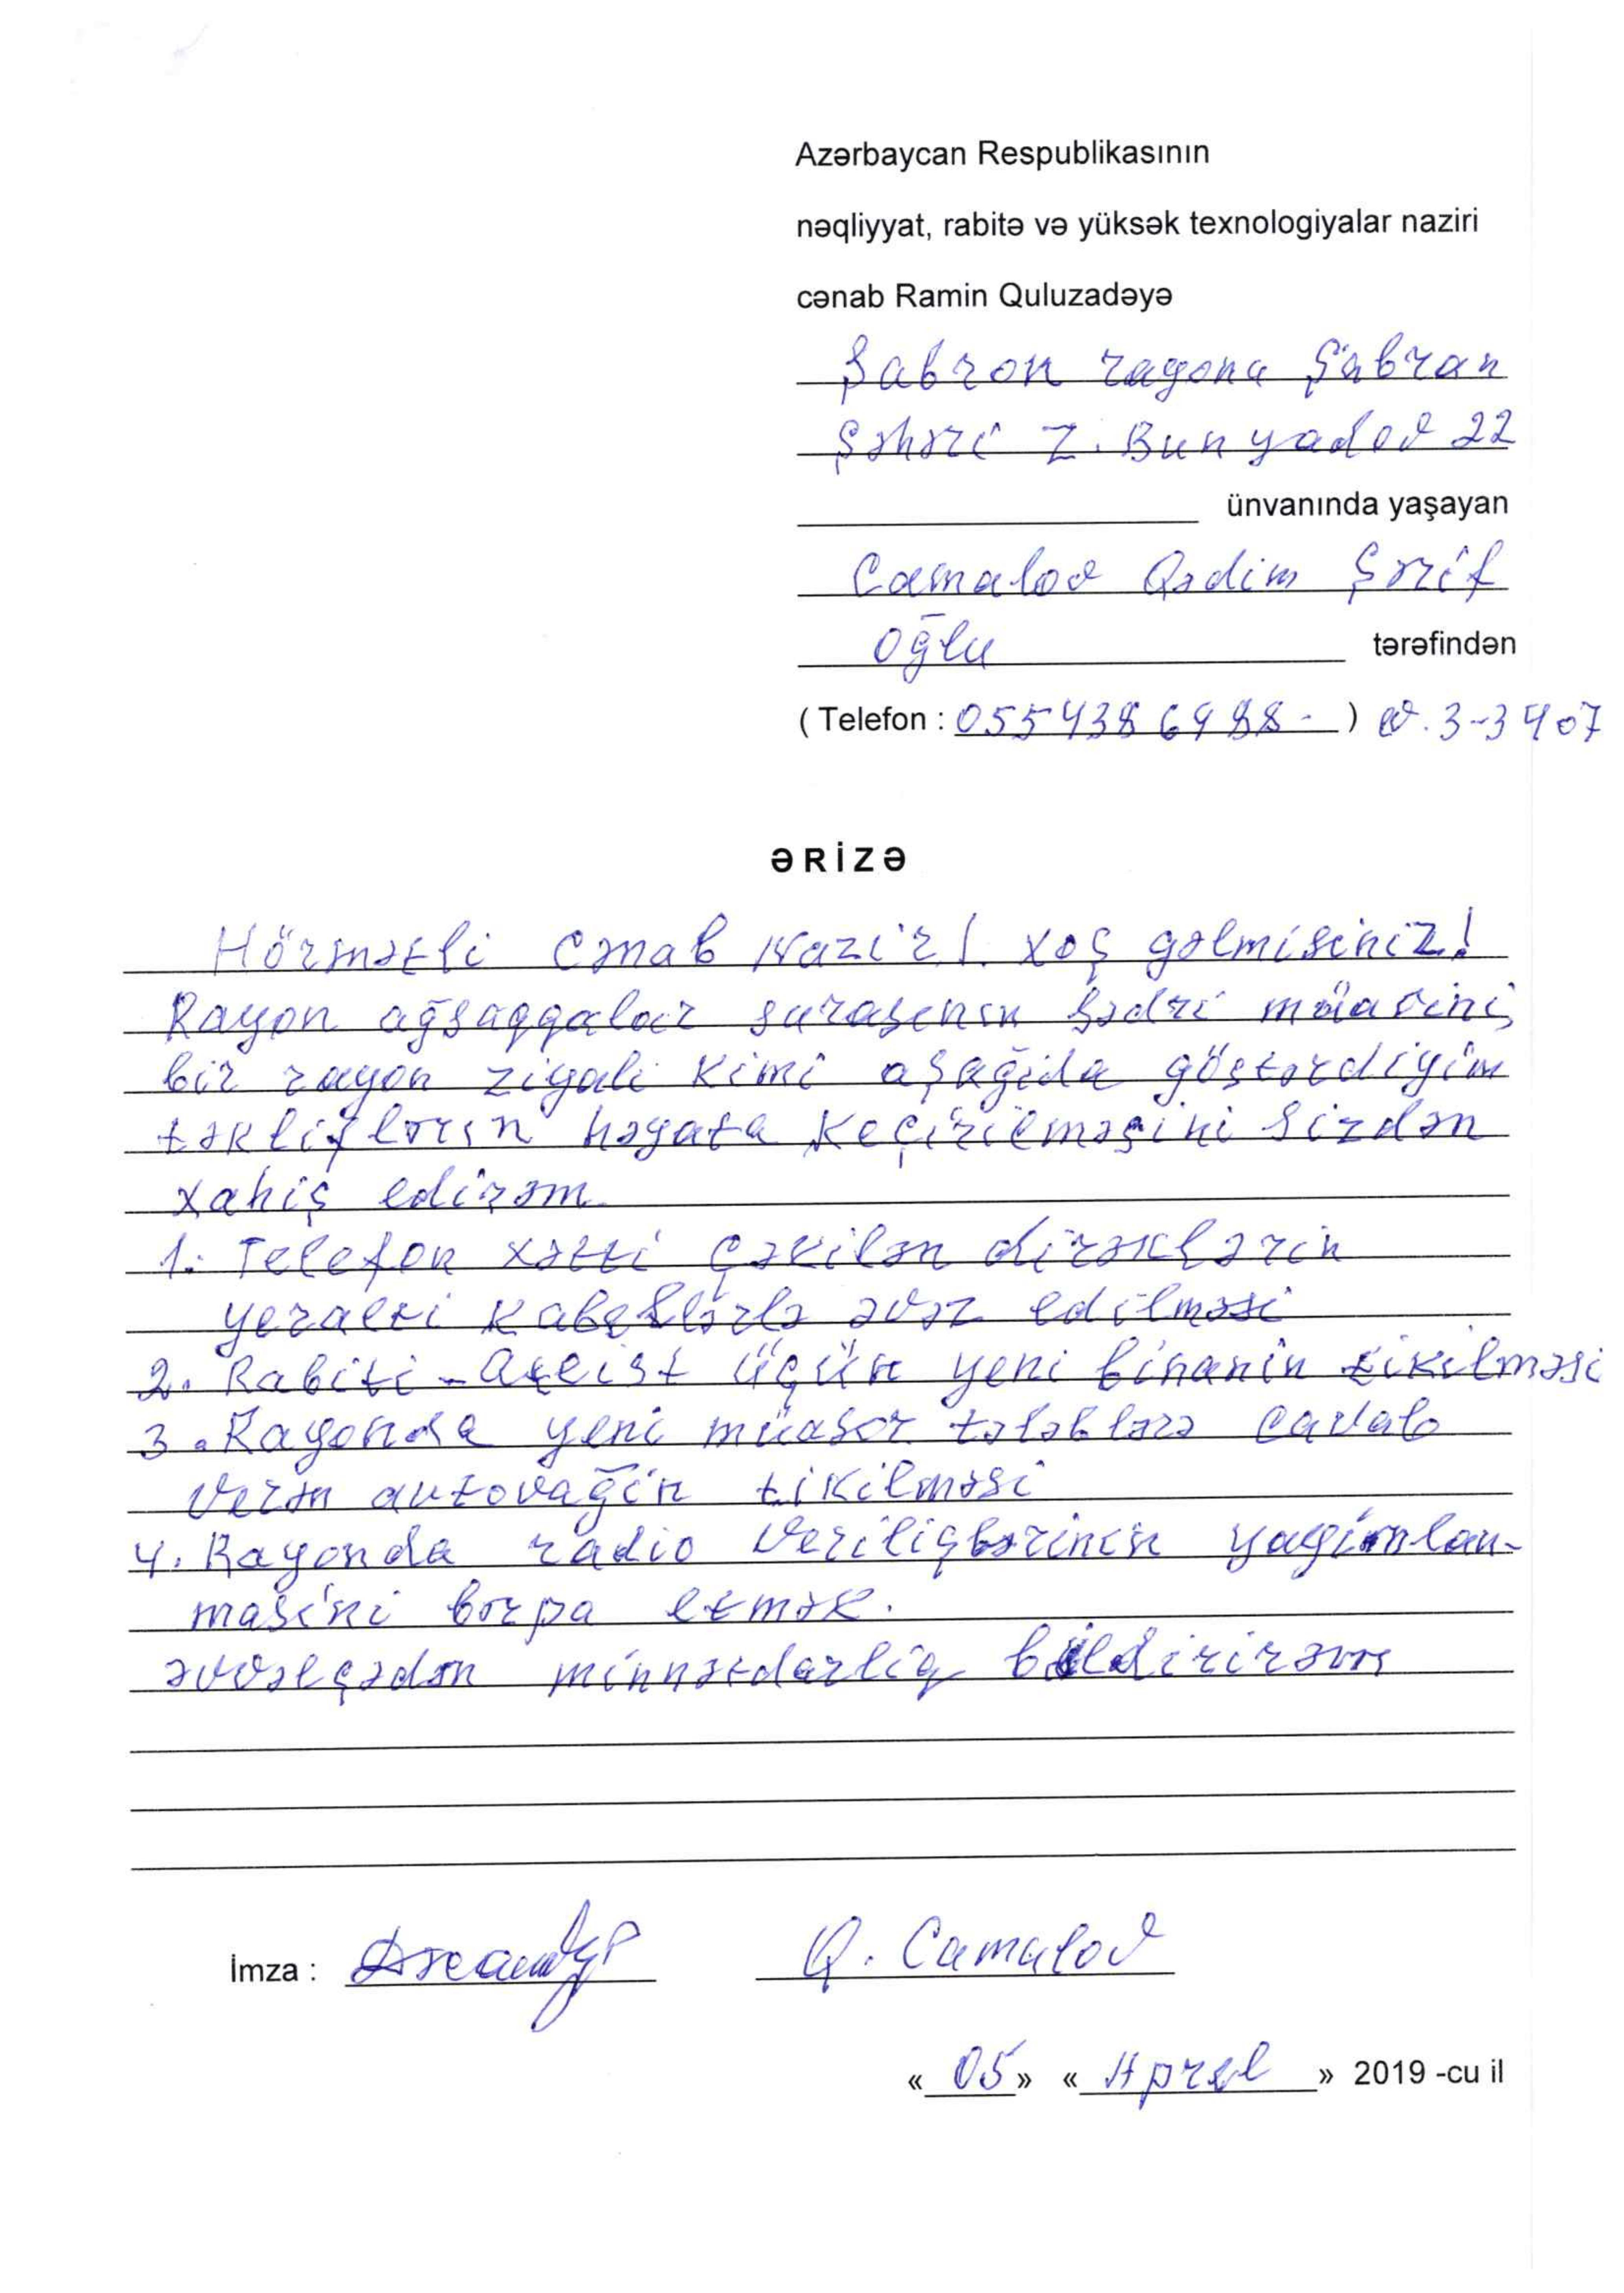 Azərbaycan Respublikasının
nəqliyyat, rabitə və yüksək texnologiyalar naziri
cənab Ramin Quluzadəyə
Şabran rayonu Şabran
Şəhəri Z. Bunyadov 22
ünvanında yaşayan
Camalov Qədim Şərif
oğlu
tərəfindən
( Telefon : 0554386988- ) ev. 3-3407
ƏRİZƏ
Hörmətli Cənab Nazir!. xoş gəlmisiniz!
Rayon ağsaqqalar şurasının sədri müavini,
bir rayon ziyali kimi aşağıda göstərdiyim
təkliflərin həyata keçirilməsini sizdən
xahiş edirəm
1. Telefon xətti çəkilən dirəklərin
yeralti kabellərlə əvəz edilməsi
2. Rabiti - üçün yeni binanin tikilməsi
3. Rayonda yeni müasir tələblərə cavab
verən avtovağin tikilməsi
4. Rayonda radio verilişlərinin yayimlan-
masini bərpa etmək.
əvvəlçədən minnətdarliq bildirirəm
İmza : Q. Camalov
« 05 » « Aprel » 2019 -cu il